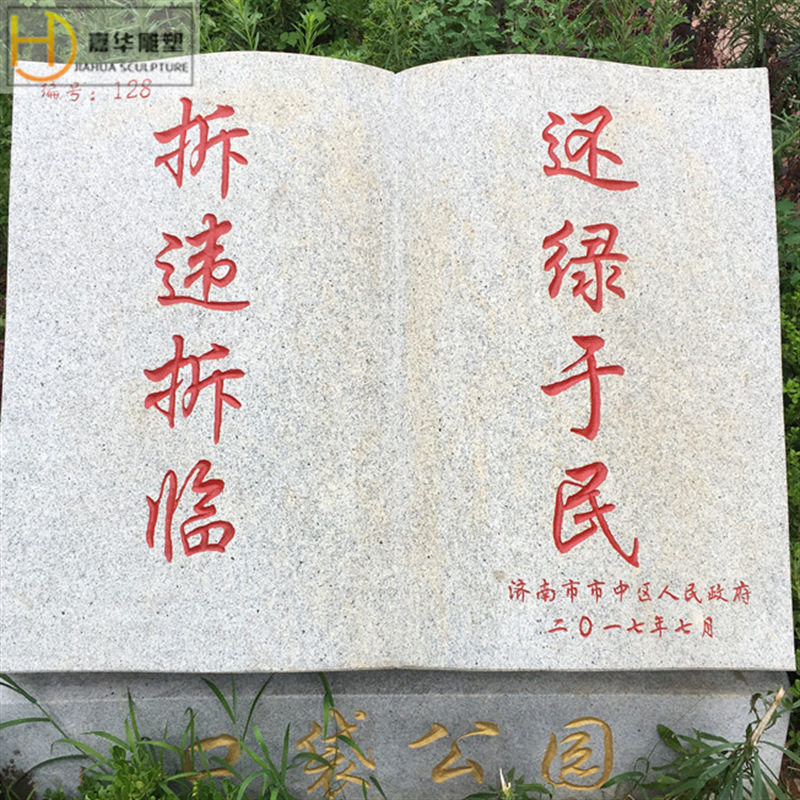 嘉华雕塑
JIAHUA SCULPTURE
编号：128
拆违拆临
还绿于民
济南市市中区人民政府
二〇一七年七月
口袋公园